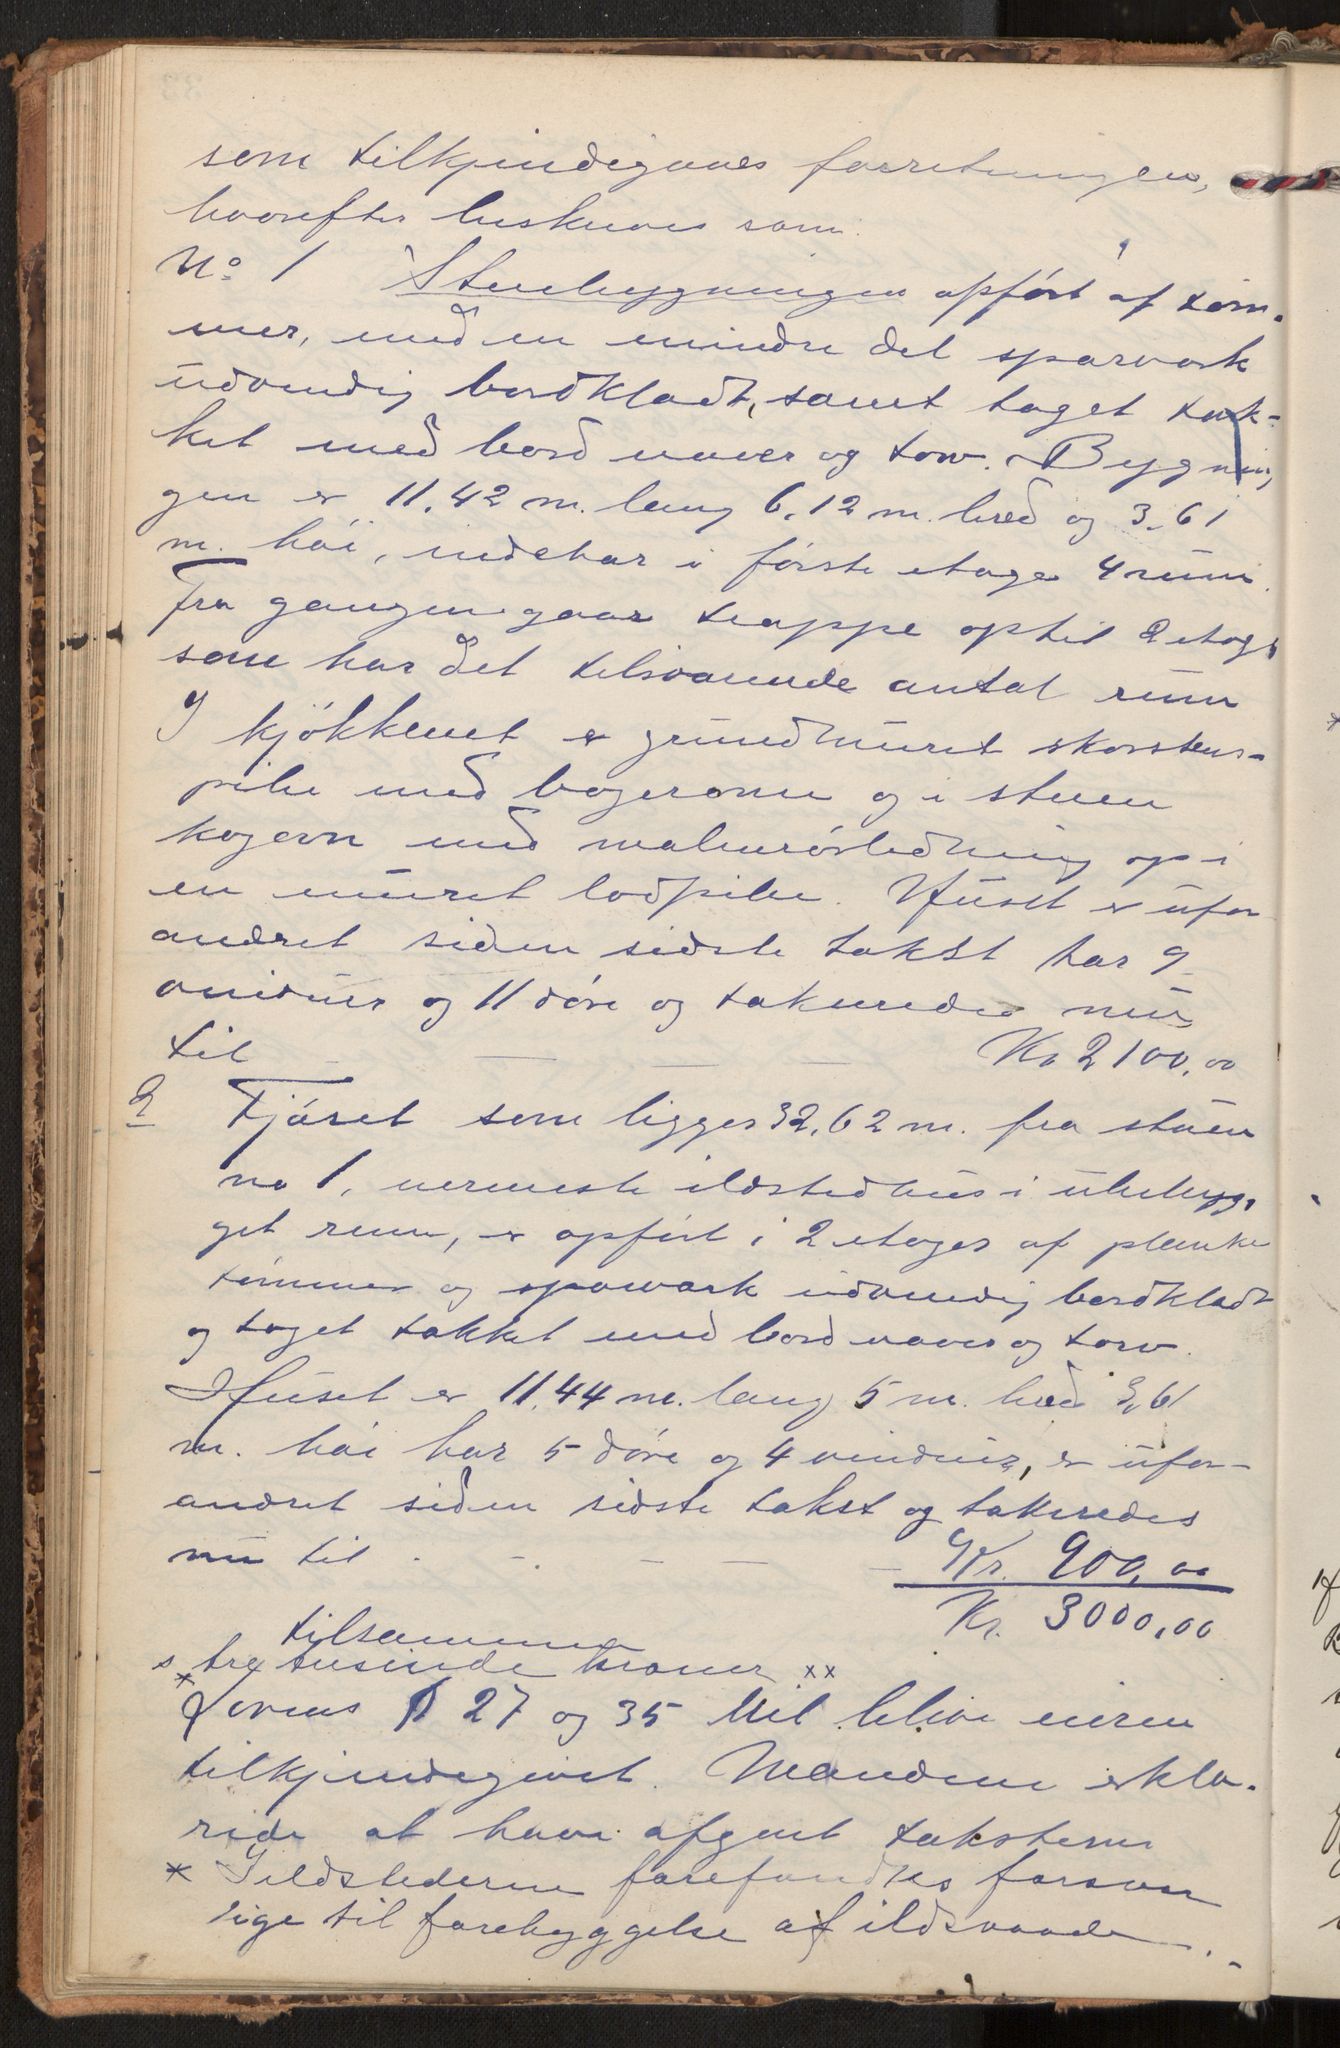 som tilkjendegaves forretningen,
hvorefter beskreves som:
No 1 Stuebygningen opført af tøm-
mer, med en mindre del sparværk
udvendig bordklædt, samt taget tæk-
ket med bord næver og torv. Bygnin-
gen er 11,42 m. lang 6,12 m. bred og 3,61
m. høi, indehar i første etage 4 rum.
Fra gangen gaar trappe op til 2 etage
som har det tilsvarende antal rum
I kjøkkenet er grundmuret skorstens-
pibe med bagerovn og i stuen
kogeovn med rørledning op i
en muret lodpibe. Huset er ufor
andret siden sidste takst har 9
vinduer og 11 døre og takseredes nu
til — — — Kr 2100,00
2 Fjøset som ligger 32,62 m. fra stuen
no 1, nermeste ildstedhus i ubebyg-
get rum, er opført i 2 etager af planke
tømmer og sparværk udvendig bordklædt
og taget tækket med bord næver og torv.
Huset er 11,44 m. lang 5 m. bred 3,61
m. høi har 5 døre og 4 vinduer, er ufor-
andret siden sidste takst og takseredes
nu til . - — — — Kr. 900,00
Kr. 3000,00
tilsammen
s tre tusinde kroner xx
* Lovens § 27 og 35 blit eieren
tilkjendegivet. Mændene erklæ-
rede at have afgivet taksterne
* Ildstederne forefandtes forsvar
lige til forebyggelse af ildsvaade. -